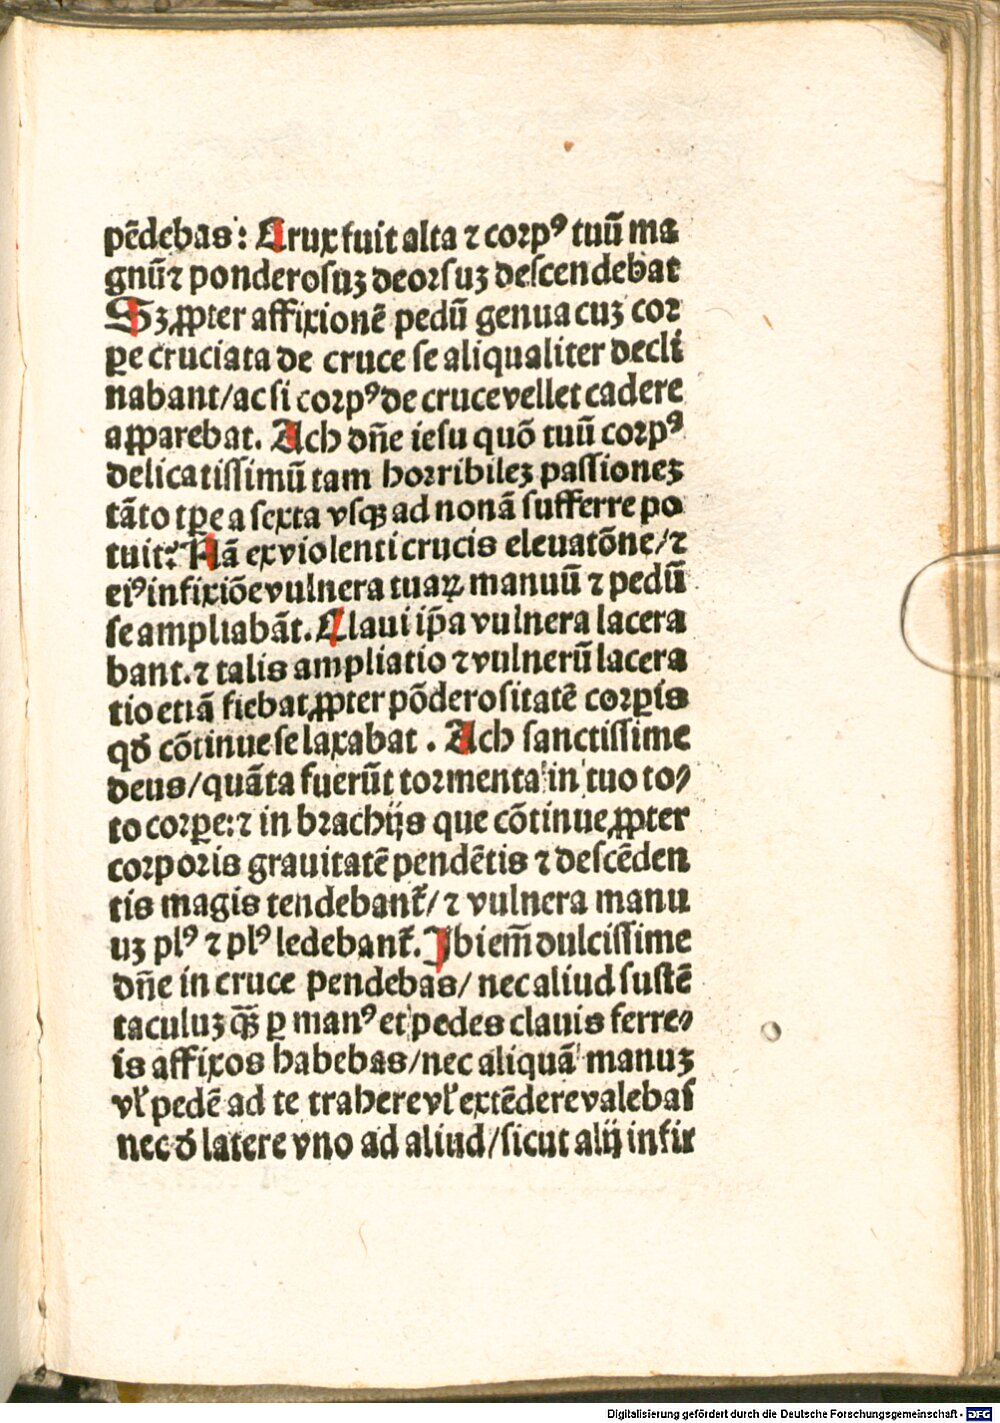 pēdebas: Crux fuit alta ⁊ corpꝰ tuū ma
gnū⁊ ponderosuꝫ deorsuꝫ descendebat
Sꝫ ꝓpter affixionē pedū genua cuꝫ cor
ꝑe cruciata de cruce se aliqualiter decli
nabant/ac si corpꝰ de cruce vellet cadere
aꝑparebat. Ach dñe iesu quō tuū corpꝰ
delicatissimū tam horribileꝫ passioneꝫ
tāto tꝑe a sexta vsqꝫ ad nonā sufferre po
tuit? Nā ex violenti crucis eleuatōne/⁊
eiꝰ infixiōe vulnera tuaꝝ manuū ⁊ pedū
se ampliabāt. Claui ip̄a vulnera lacera
bant.⁊ talis ampliatio ⁊ vulnerū lacera
tio etiā fiebat ꝓpter pōderositatē corꝑis
qđ cōtinue se laxabat. Ach sanctissime
deus/quāta fuerūt tormenta in tuo to⸗
to corꝑe:⁊ in brachijs que cōtinue ꝓpter
corporis grauitatē pendētis ⁊ descēden
tis magis tendebant᷑/⁊ vulnera manu
uꝫ plꝰ ⁊ plꝰ ledebant᷑. Ibi em̄ dulcissime
dñe in cruce pendebas/ nec aliud sustē
taculuꝫ qꝫ̄ ꝑ manꝰ et pedes clauis ferre⸗
is affixos habebas/nec aliquā manuꝫ
vl̓ pedē ad te trahere vl̓ extēdere valebas
nec đ latere vno ad aliud/sicut alij infir